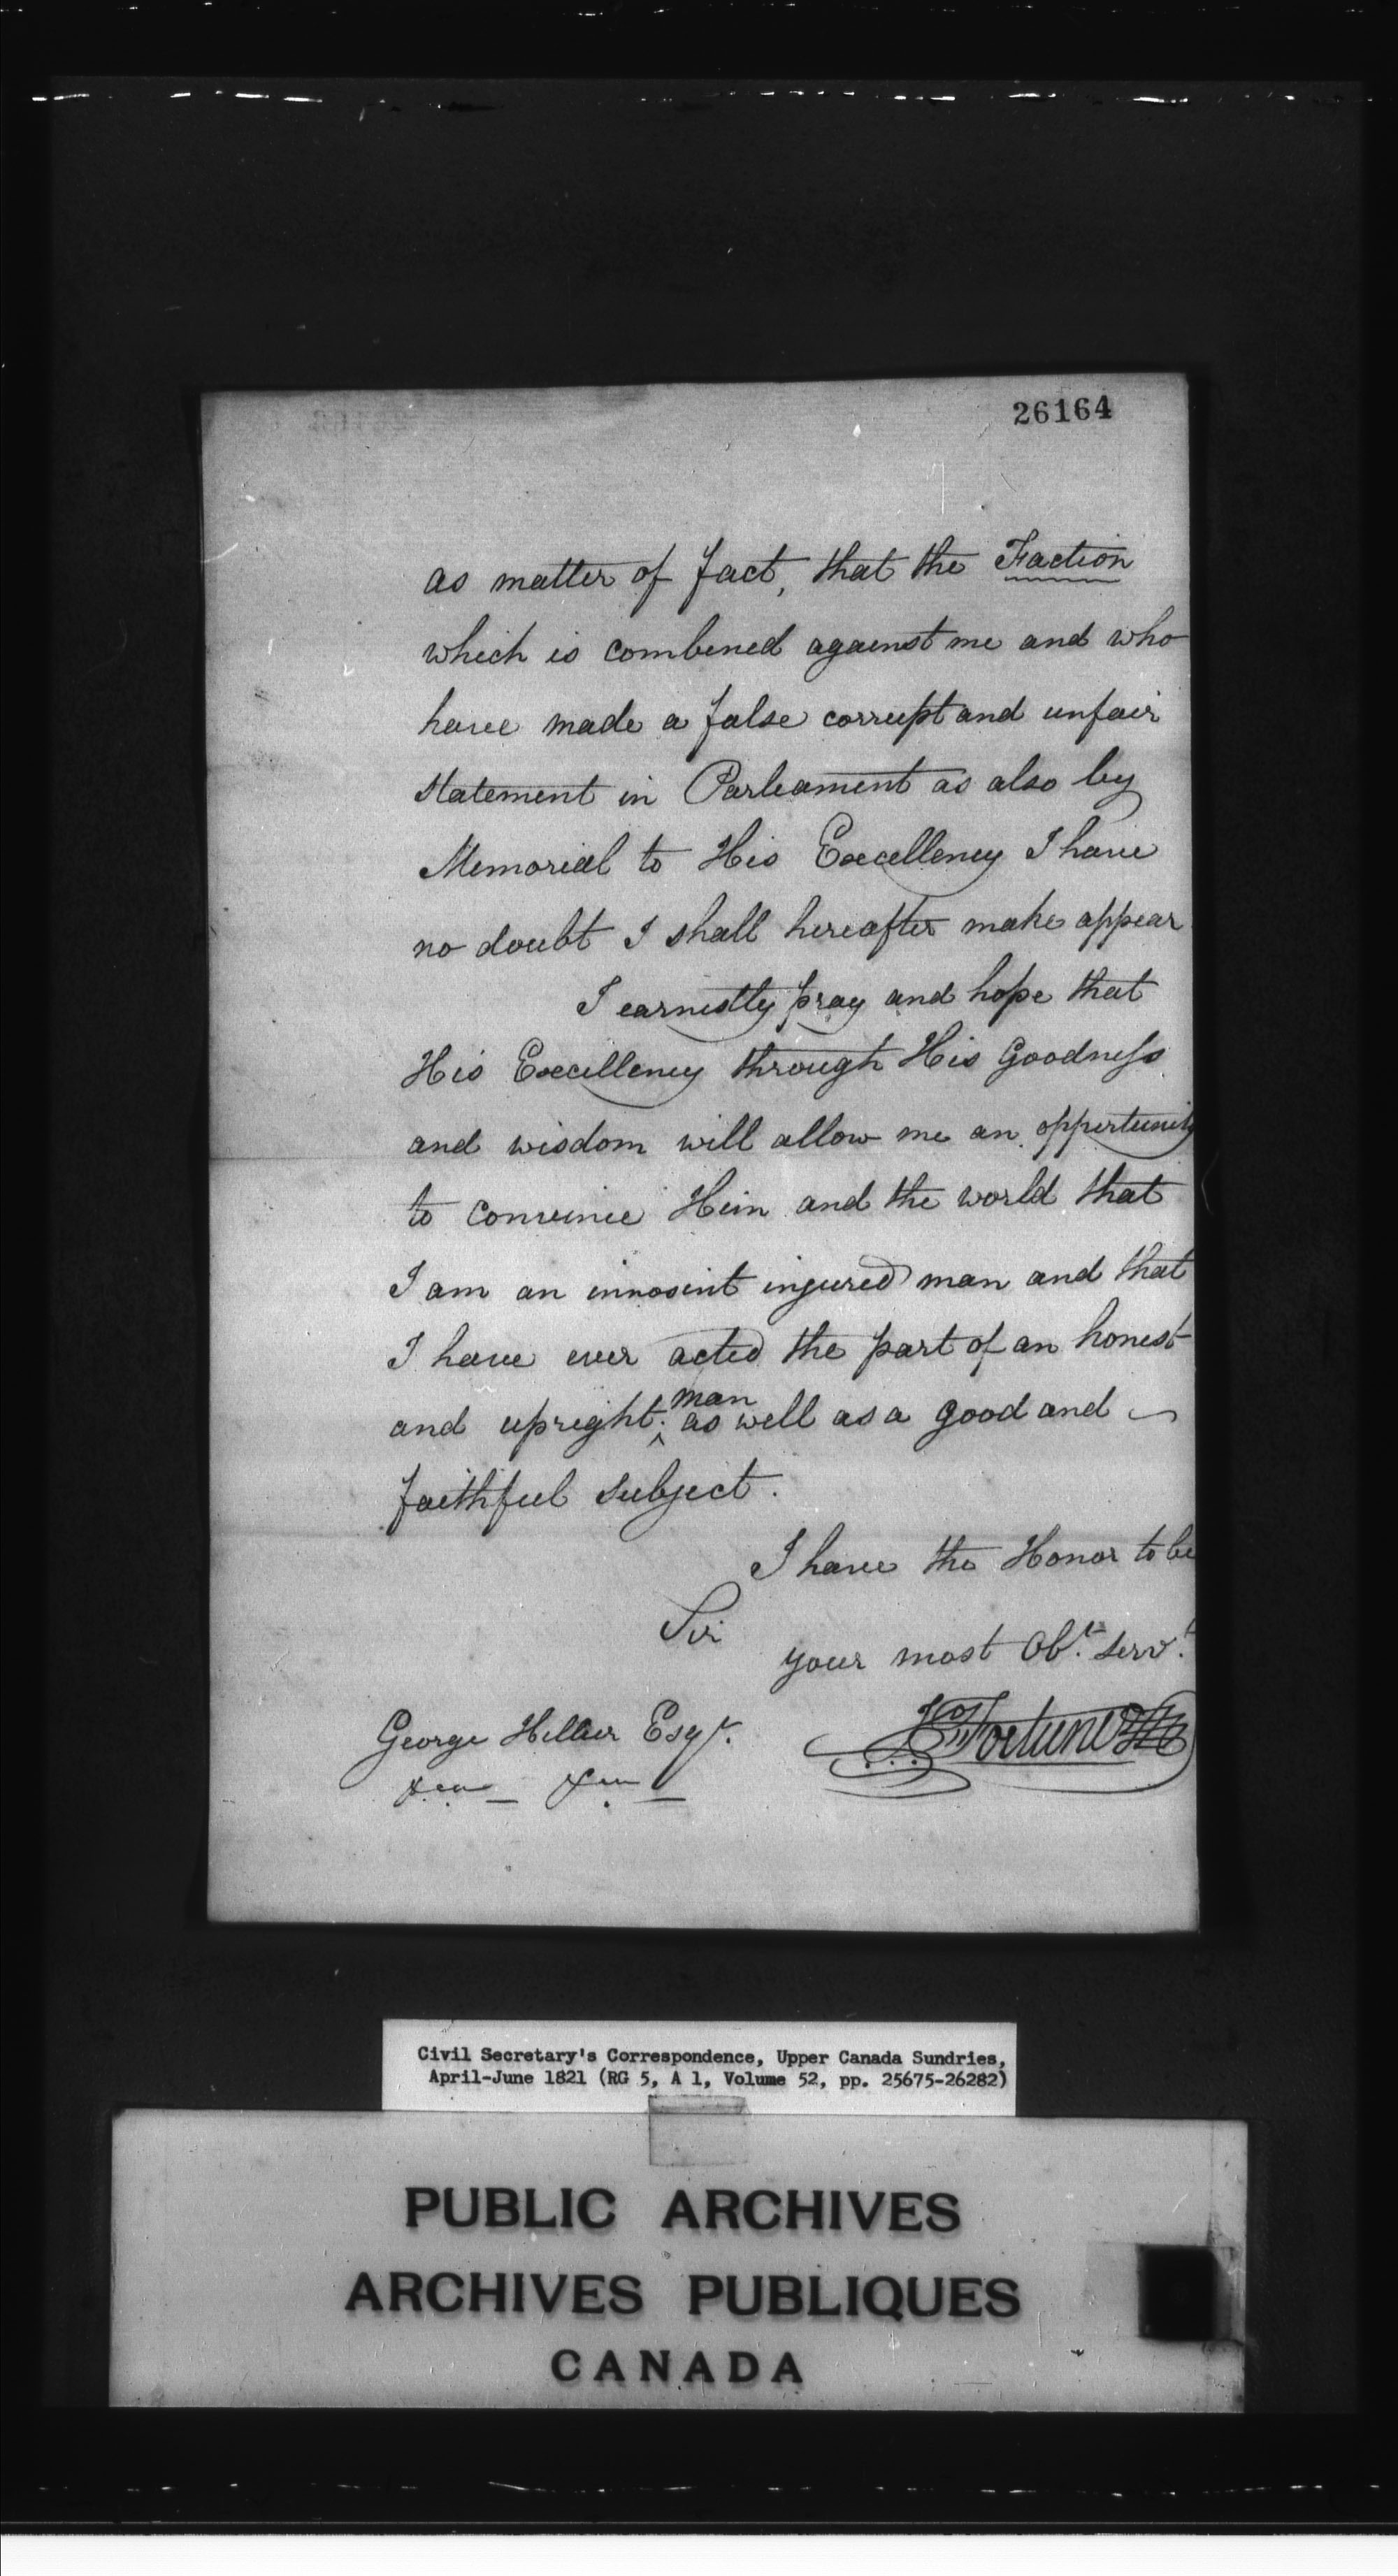 26164
as matter of fact, that the Faction
which is combined against me and who
have made a false corrupt and unfair
statement in Parliament as also by
Memorial to His Excellency I have
no doubt I shall hereafter make appear
I earnestly pray and hope that
His Excellency through His Goodness
and wisdom will allow me an oppertunity
to convince Him and the world that
I am an innosint injured man and that
I have ever acted the part of an honest
man
and upright as well as a good and
faithful subject.
I have the Honor to be
Sir
your most Obt. servt.
George Hillier Esqr.
Fortune
Civil Secretary's Correspondence, Upper Canada Sundries,
April-June 1821 (RG 5, A 1, Volume 52, pp. 25675-26282)
PUBLIC ARCHIVES
ARCHIVES PUBLIQUES
CANADA